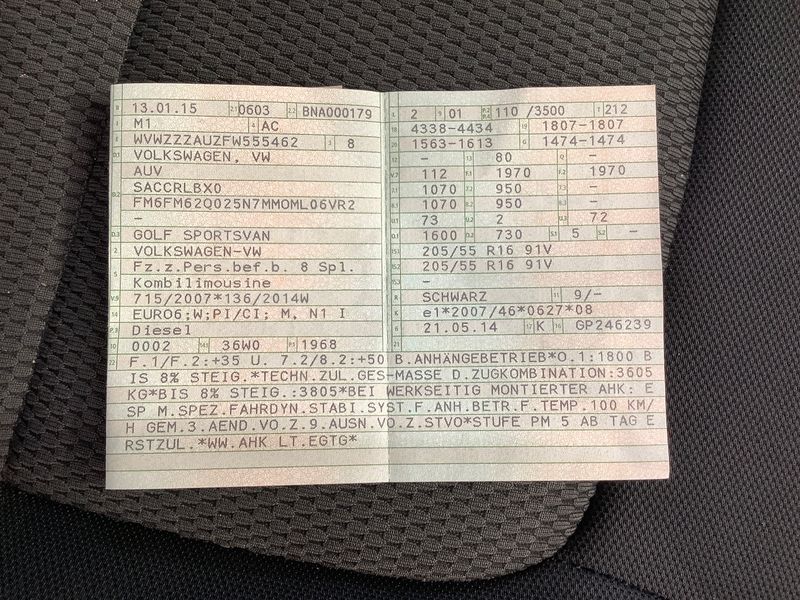 B 13.01.15 2.1 0603 2.2 BNA000179
J M1 4 AC
E WVWZZZAUZFW555462 3 8
D.1 VOLKSWAGEN, VW
AUV
D.2 SACCRLBX0
FM6FM62Q025N7MMOML06VR2
–
D.3 GOLF SPORTSVAN
2 VOLKSWAGEN-VW
5 Fz.z.Pers.bef.b. 8 Spl.
Kombilimousine
V.9 715/2007*136/2014W
14 EURO6;W;PI/CI; M, N1 I
P.3 Diesel
10 0002 14.1 36W0 P.1 1968
L 2 9 01 P.2 P.4 110 /3500 T 212
18 4338-4434 19 1807-1807
20 1563-1613 G 1474-1474
12 – 13 80 Q –
V.7 112 F.1 1970 F.2 1970
7.1 1070 7.2 950 7.3 –
8.1 1070 8.2 950 8.3 –
U.1 73 U.2 2 U.3 72
O.1 1600 O.2 730 S.1 5 S.2 –
15.1 205/55 R16 91V
15.2 205/55 R16 91V
15.3 –
R SCHWARZ 11 9/–
K e1*2007/46*0627*08
6 21.05.14 17 K 16 GP246239
21
22 F.1/F.2:+35 U. 7.2/8.2:+50 B.ANHÄNGEBETRIEB*O.1:1800 B
IS 8% STEIG.*TECHN.ZUL.GES-MASSE D.ZUGKOMBINATION:3605
KG*BIS 8% STEIG.:3805*BEI WERKSEITIG MONTIERTER AHK: E
SP M.SPEZ.FAHRDYN.STABI.SYST.F.ANH.BETR.F.TEMP.100 KM/
H GEM.3.AEND.VO.Z.9.AUSN.VO.Z.STVO*STUFE PM 5 AB TAG E
RSTZUL.*WW.AHK LT.EGTG*